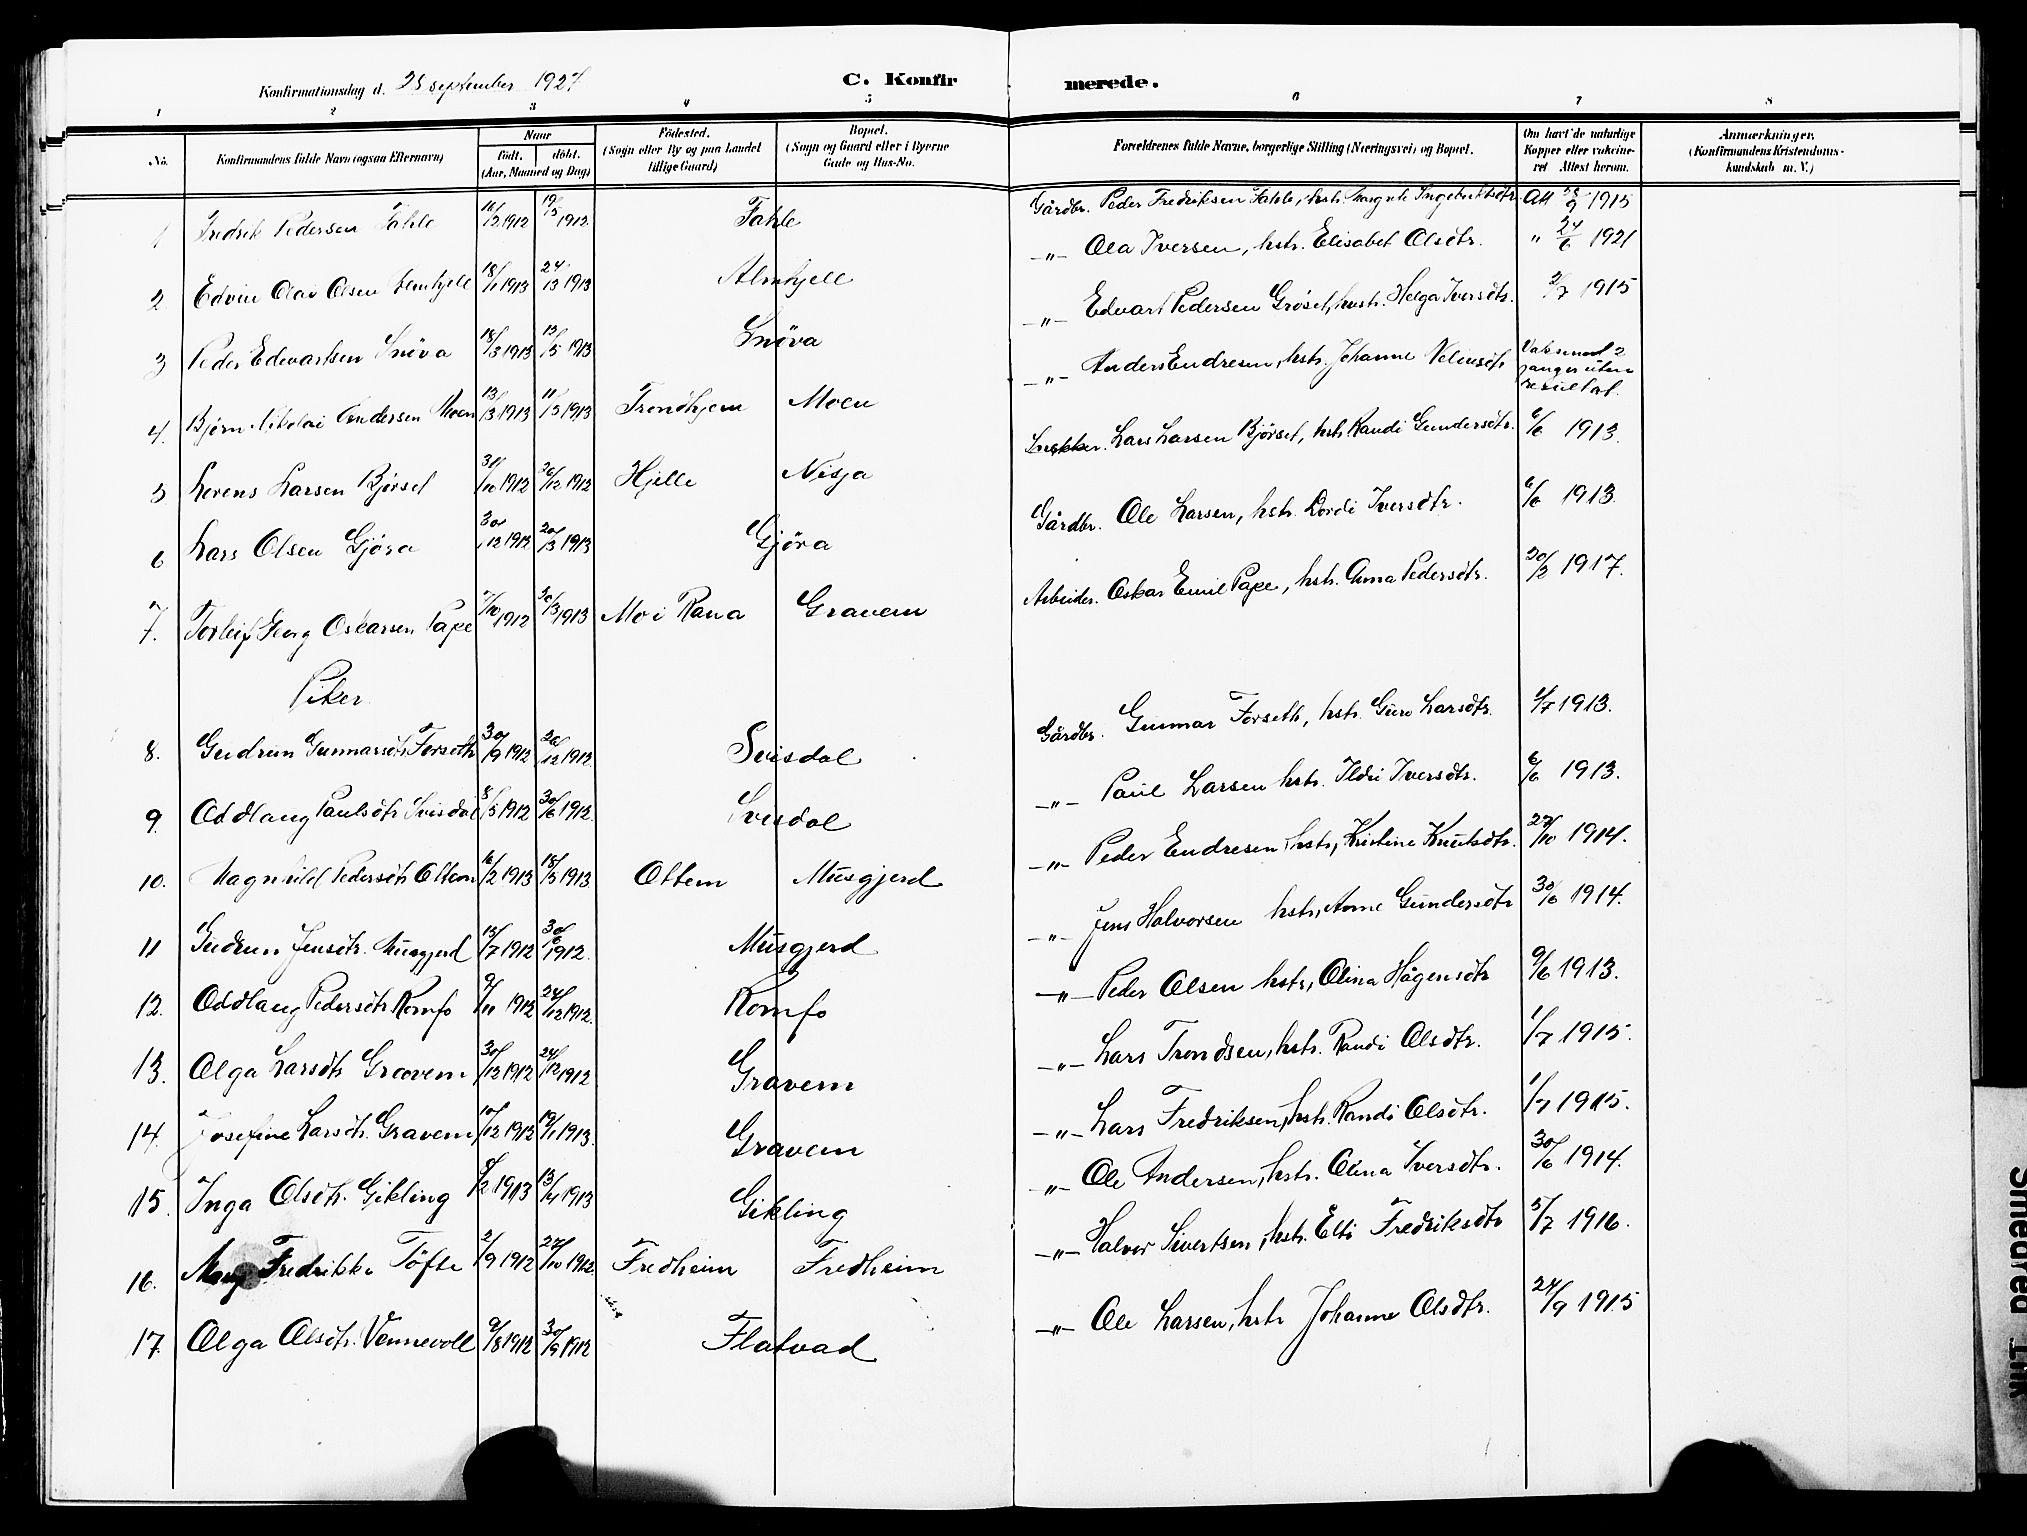 Konfirmationsdag d. 25 september 1927
C. Konfirmerede.
1 2 3 4 5 6 7 8
No. Konfirmandens fulde Navn (ogsaa Efternavn) Naar født. døbt. (Aar, Maaned og Dag) Fødested. (Sogn eller By og paa Landet tillige Gaard) Bopæl. (Sogn og Gaard eller i Byerne Gade og Hus-No. Forældrenes fulde Navne, borgerlige Stilling (Næringsvei) og Bopæl. Om havt de naturlige Kopper eller vakcineret Attest herom. Anmærkninger. (Konfirmandens Kristendomskundskab m. V.)
1 Fredrik Pedersen Fahle 16/2 1912 19/5 1912 Fahle Gårdbr. Peder Fredriksen Fahle, hstr. Margrete Ingebriktsdtr. Att 28/9 1915
2. Edvin Olai Olsen Almhjell 18/1 1913 24/3 1913 Almhjell -"- Ola Iversen, hstr. Elisabet Olsdtr. " 24/6 1921
3 Peder Edvartsen Snöva 18/3 1913 13/5 1913 Snöva -"- Edvart Pedersen Grøset, hustr. Helga Iversdtr. 2/7 1915
4. Bjørn Nikolai Andersen Moen 13/3 1913 11/5 1913 Trondhjem Moen -"- Anders Endresen, hstr. Johanne Nelausdtr Vaksinert 2 ganger uten resultat.
5 Lorens Larsen Bjørset 31/10 1912 26/12 1912 Hjelle Nisja Snekker. Lars Larsen Bjørset, hstr. Randi Gundersdtr. 6/6 1913.
6 Lars Olsen Gjøra 30/12 1912 20/3 1913 Gjöra Gårdbr. Ole Larsen, hstr. Dordi Iversdtr. 6/6 1913
7. Torleif Georg Oskarsen Pape 7/10 1912 30/3 1913 Mo i Rana Gravem Arbeider. Oskar Emil Pape, hstr. Anna Pedersdtr. 20/2 1917.
Piker
8. Gudrun Gunnarsdtr Forseth 30/9 1912 26/12 1912 Svisdal Gårdbr. Gunnar Forseth, hstr. Guro Larsdtr. 1/7 1913.
9. Oddlaug Paulsdtr Svisdal 8/5 1912 30/6 1912. Svisdal -"- Paul Larsen hstr. Ildri Iversdtr. 6/6 1913.
10. Magnhild Pedersdtr Ottem 16/2 1913 18/5 1913 Ottem Musgjerd -"- Peder Endresen hstr, Kristine Knutsdtr. 27/10 1914.
11 Gudrun Jensdtr. Musgjerd 15/7 1912 30/6 1912. Musgjerd -"- Jens Halvorsen hstr, Anne Gundersdtr 30/6 1914.
12. Oddlaug Pedersdtr Romfo 9/11 1912 24/12 1912. Romfo -"- Peder Olsen hstr, Olina Hågensdtr 9/6 1913.
13. Olga Larsdtr Gravem 30/12 1912 24/12 1912 Gravem -"- Lars Trondsen, hstr. Randi Olsdtr. 1/7 1915.
14. Josefine Larsdtr. Gravem 10/12 1912 19/1 1913. Gravem -"- Lars Fredriksen, hstr. Randi Olsdtr. 1/7 1915.
15. Inga Olsdtr. Gikling 1/2 1913 13/4 1913 Gikling -"- Ole Andersen, hstr. Olina Iversdtr. 30/6 1914.
16. Mary Fredrikke Töfte 2/9 1912 27/10 1912. Fredheim Fredheim -"- Halvor Sivertsen, hstr. Elti Fredriksdtr 5/7 1916.
17. Olga Olsdtr. Vennevoll 9/8 1912 30/9 1912 Flatvad -"- Ole Larsen, hstr Johanne Olsdtr. 24/9 1915
Smeared Ink